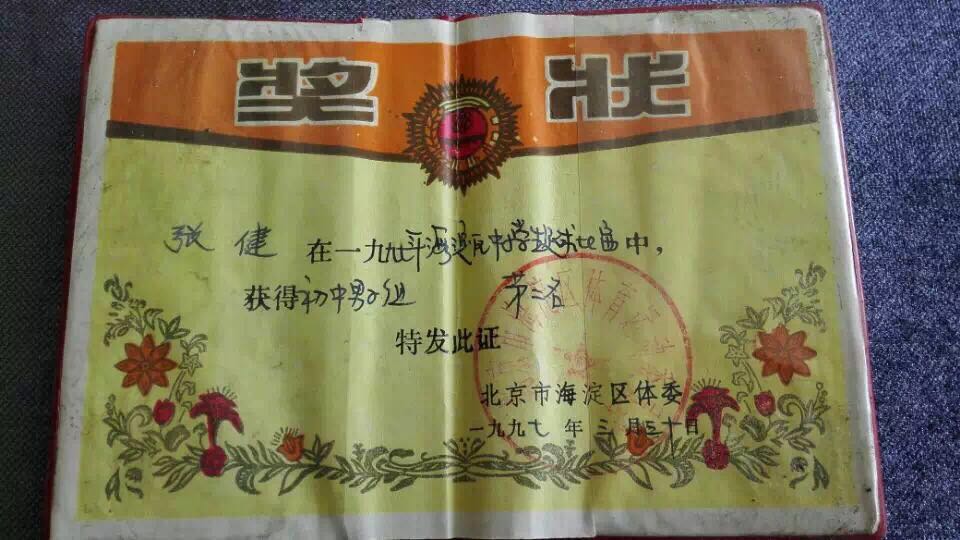 奖状
张健 在一九九七年海淀区中小学武术比赛中,
获得初中男子组 第二名
特发此证
北京市海淀区体委
一九九七年三月三十日